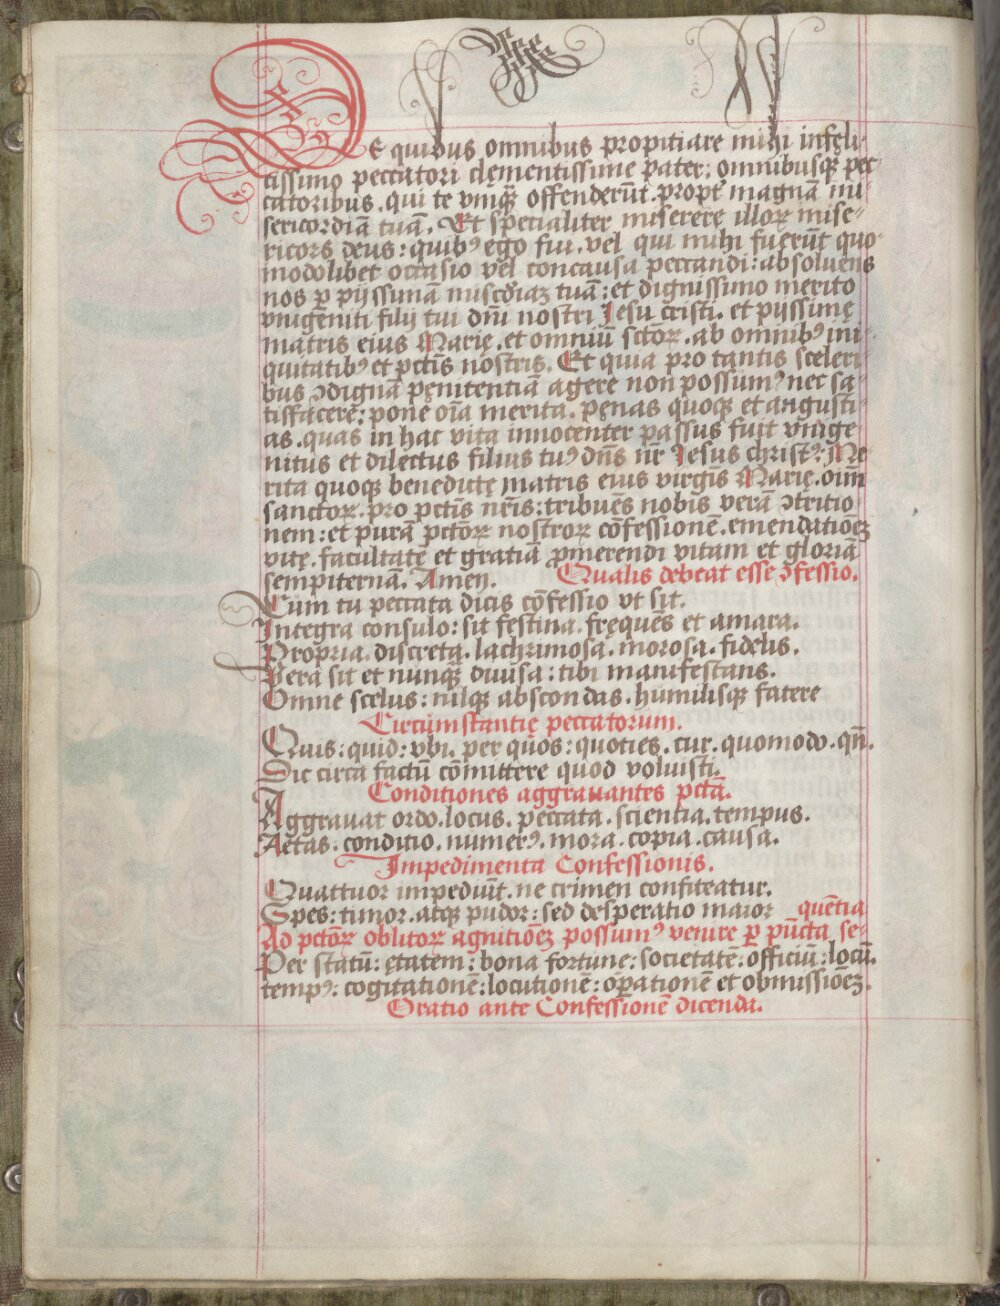 De quibus omnibus propitiare mihi infęli-
cissimo peccatori clęmentissime pater: omnibusqꝫ pec-
catoribus, qui te vnqꝫ̄ offenderūt. propt̄ magnā mi-
sericordiā tuā. Et specialiter miserere illoꝝ mise-
ricors deus: quibꝰ ego fui. vel qui mihi fuerūt quo-
modolibet occasio vel concausa peccandi: absoluens
nos ꝑ pijssimā miscd̄iaꝫ tuā: et dignissimo merito
vnigeniti filij tui dn̄i nostri Iesu cristi. et pijssimę
matris eius Marię. et omniū sctōꝝ. ab omnibꝰ ini-
quitatibꝰ et pctīs nostris. Et quia pro tantis sceleri-
bus ↄdignā pęnitentiā agere non possumꝰ nec sa-
tisfacere: pone oīa merita. pęnas quoqꝫ et angusti-
as. quas in hac vita innocenter passus fuit vnige-
nitus et dilectus filius tuꝰ dn̄s nr̄ Iesus christꝰ: Me-
rita quoqꝫ benedictę matris eius virginis Marię. oīm
sanctoꝝ. pro pctīs nr̄is: tribuens nobis verā ↄtritio-
nem: et purā pctōꝝ nostroꝝ cōfessionē. emendatiōeꝫ
vitę. facultatē et gratiā ꝓmerendi vitam et gloriā
sempiternā. Amen. Qualis debeat esse ↄfessio.
Cum tu peccata dicis cōfessio vt sit.
Integra consulo: sit festina. fręquēs et amara.
Propria. discreta. lachrimosa. morosa. fidelis.
Vera sit et nunqꝫ̄ diuisa: tibi manifestans.
Omne scelus: nilqꝫ abscondas. humilisqꝫ fatere
Circumstantię peccatorum.
Quis: quid: vbi. per quos: quoties. cur. quomodo. qn̄.
Sic circa factū cōmittere quod voluisti.
Conditiones aggrauantes pctā.
Aggrauat ordo. locus. peccata. scientia. tempus.
Aetas. conditio. numerꝰ. mora. copia. causa.
Impedimenta Confessionis.
Quattuor impediūt. ne crimen confiteatur.
Spes: timor. atqꝫ pudor: sed desperatio maior quentia
Ad pctōꝝ oblitoꝝ agnitiōeꝫ possumꝰ venire ꝑ pūcta se-
Per statū: ętatem: bona fortune: societatē: officiū: locū.
tempꝰ: cogitationē: locutionē: oꝑationē et obmissiōeꝫ.
Oratio ante Confessionē dicenda.